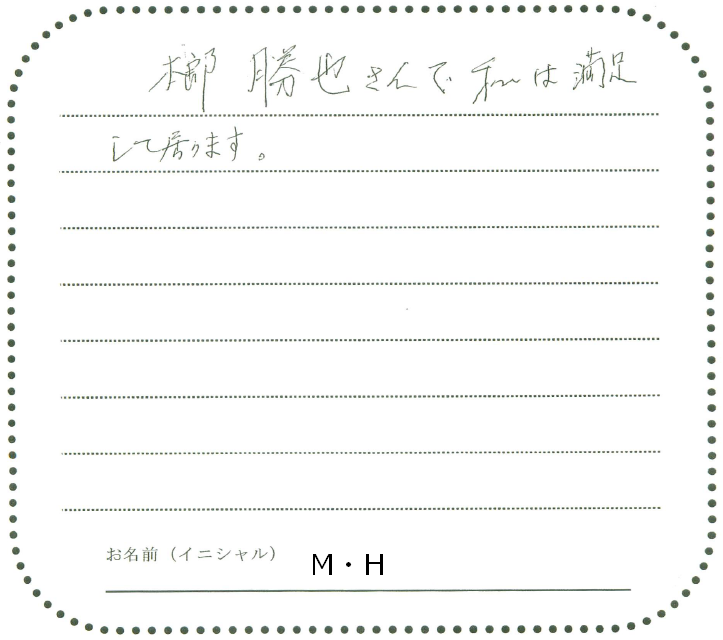 榔 勝也さんで私は満足
して居ります。
お名前（イニシャル） M・H